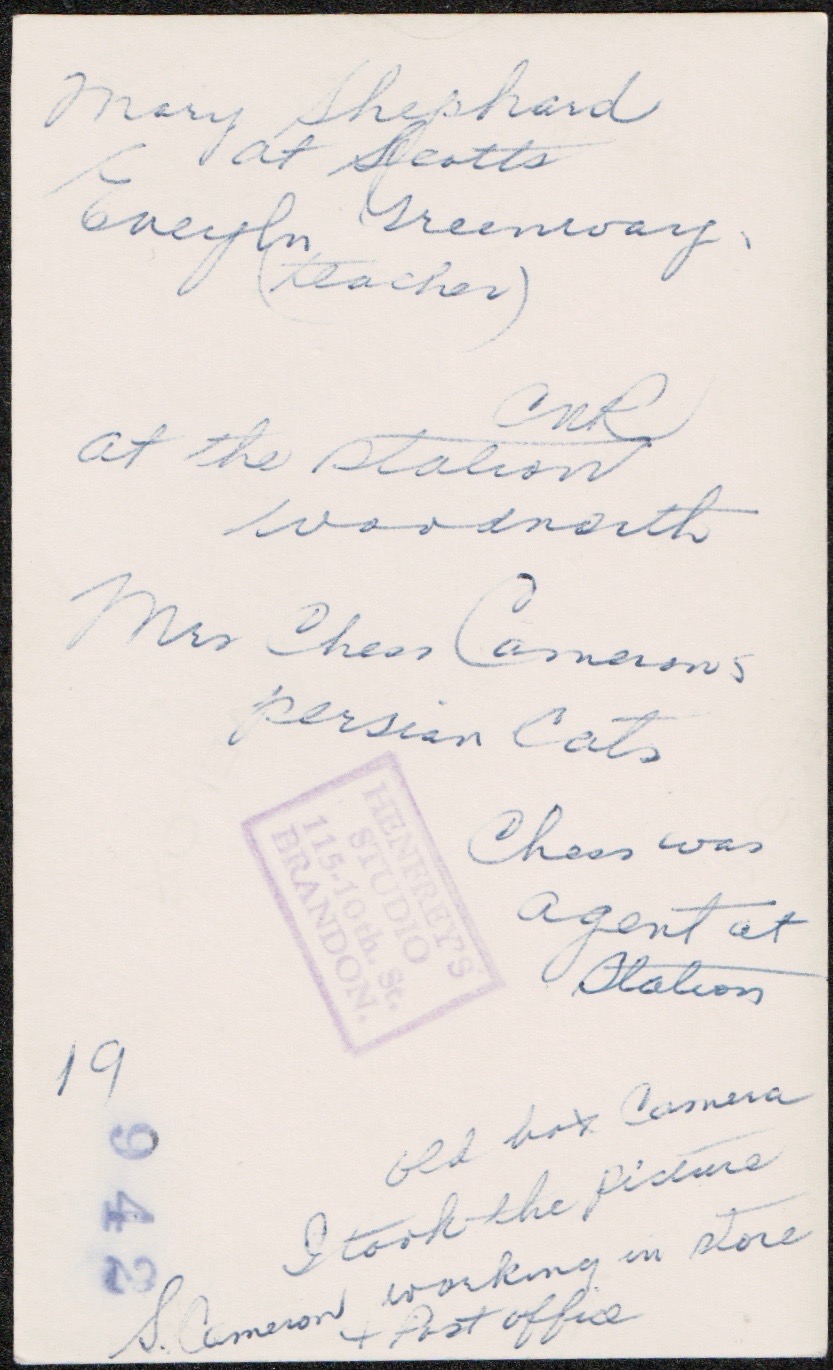 Mary Shephard
at Scotts
Eveyln Greenway.
(teacher)
CNR
at the station
Woodnorth
Mrs Chess Camerons
persian Cats
HENFREY'S
STUDIO
115-10th. St.
BRANDON.
Chess was
agent at
Station
19
942
old box Camera
I took the picture
S. Cameron working in store
+ Post office